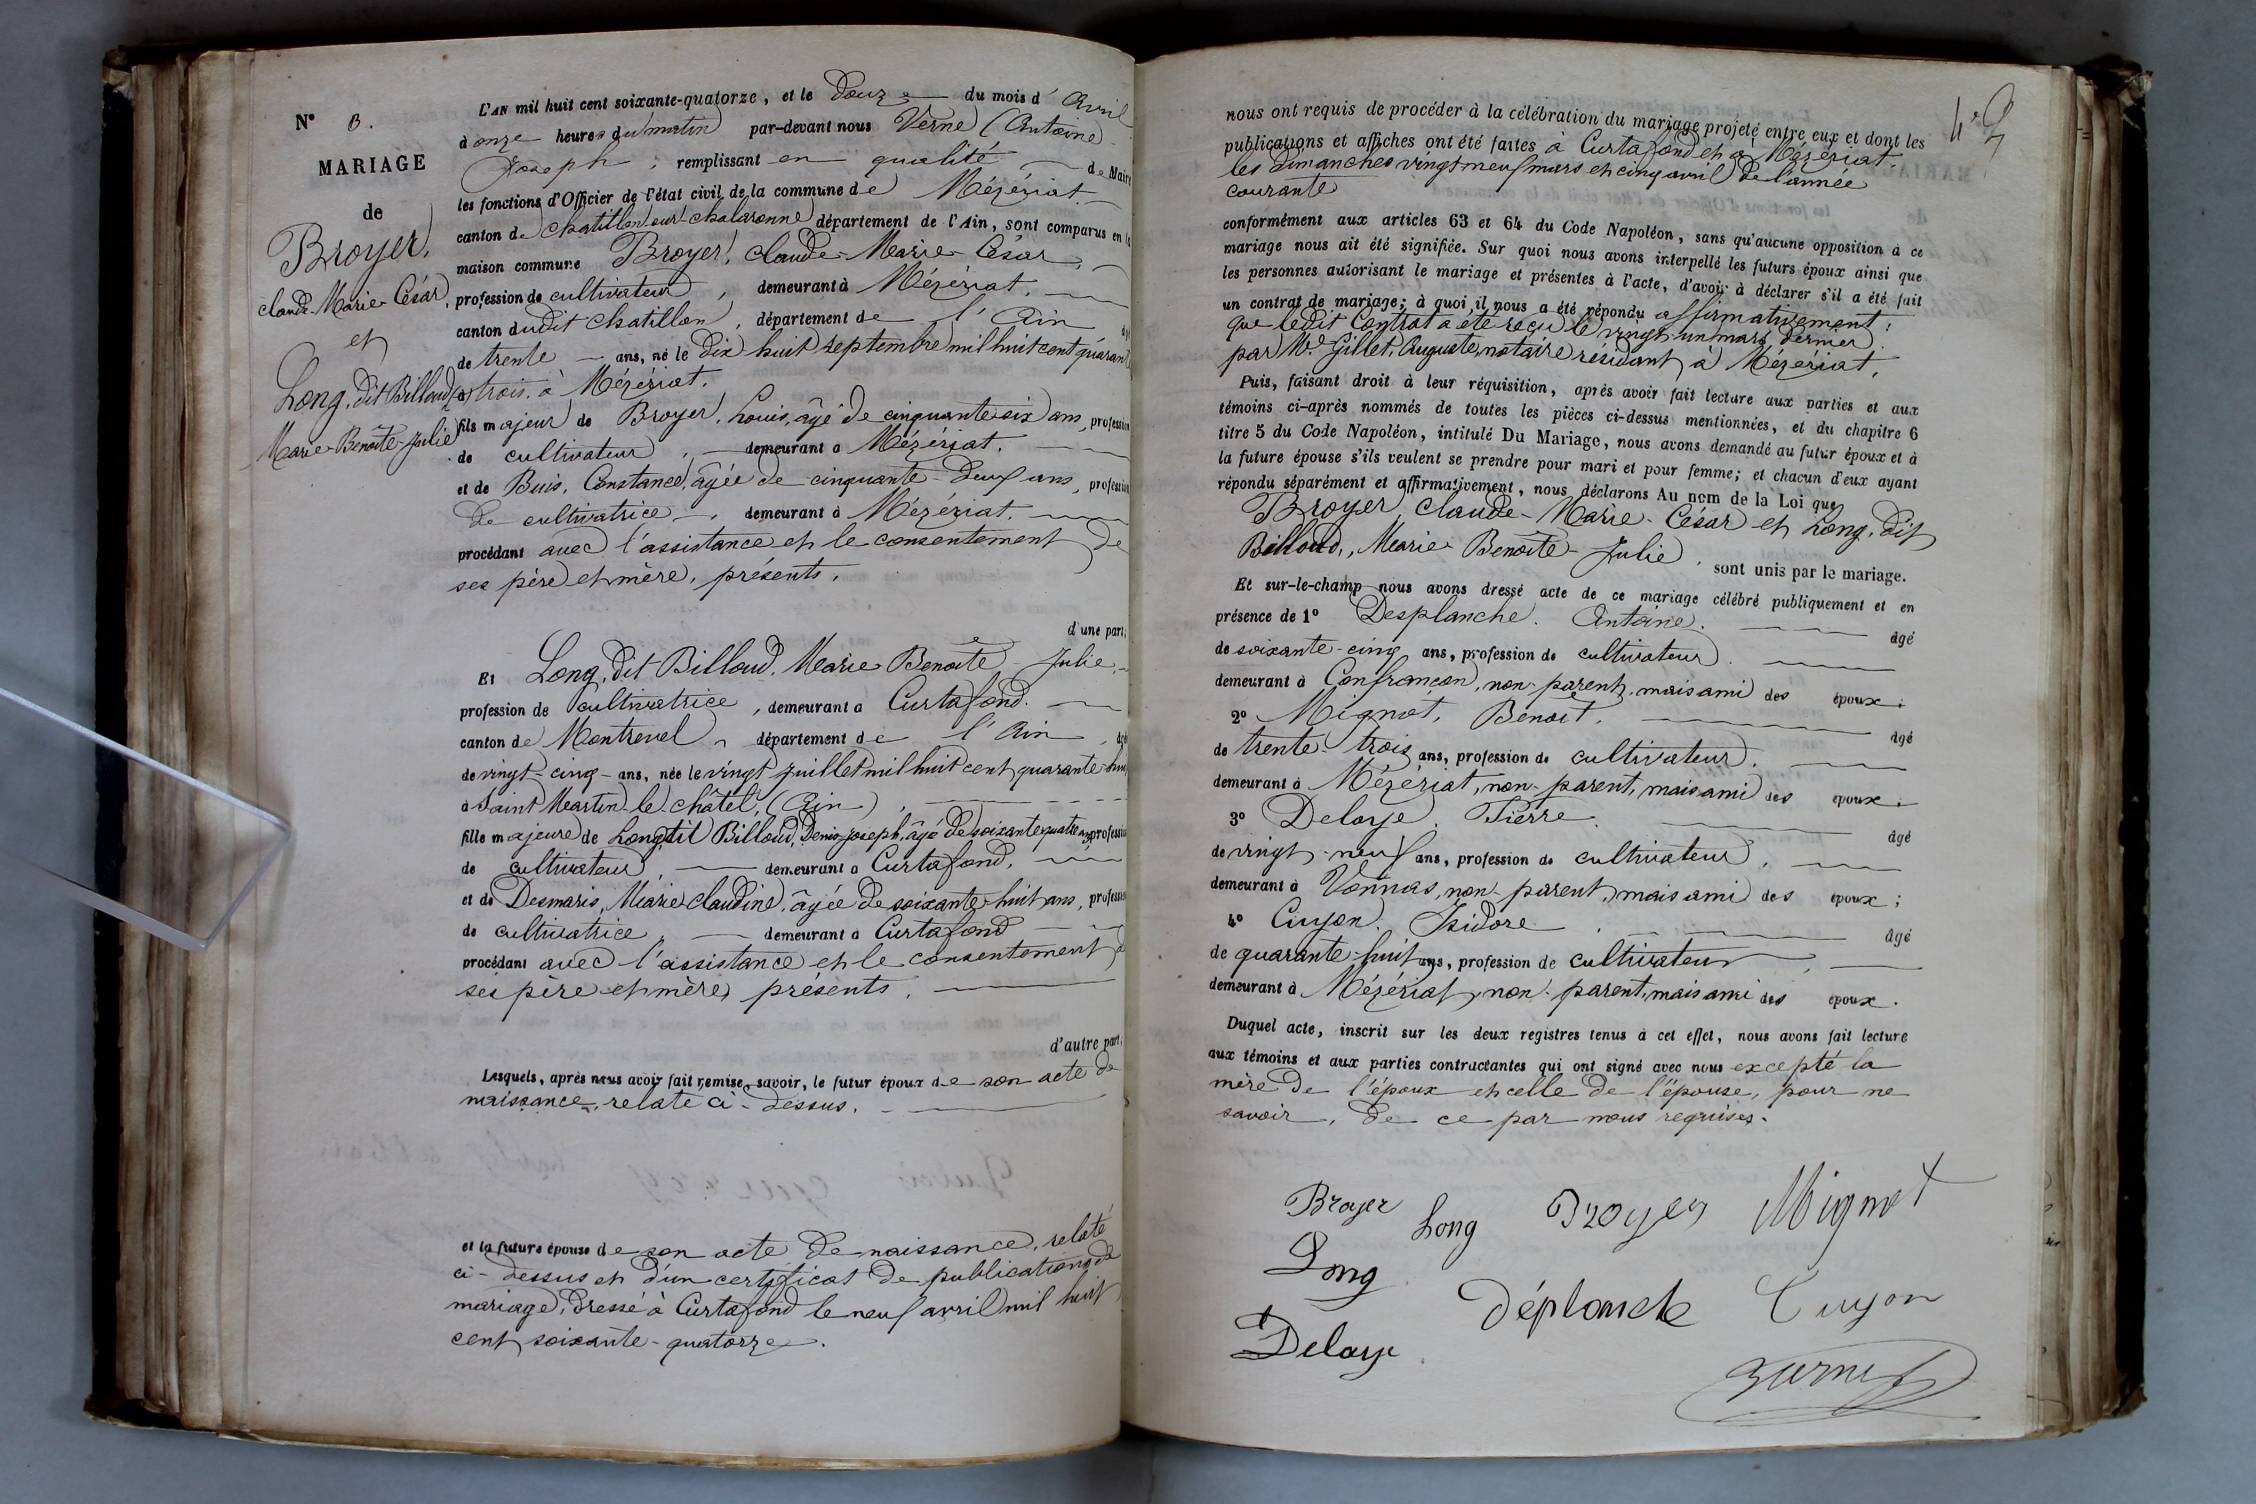 N° 8.
MARIAGE
de
Broyer,
Claude-Marie-César,
et
Long, dit Billoud,
Marie-Benoîte-Julie
L'AN mil huit cent soixante-quatorze, et le Douze du mois d'Avril
à onze heures du matin par-devant nous Verne (Antoine-
Joseph, remplissant en qualité de Maire
les fonctions d'Officier de l'état civil de la commune de Mézériat.
canton de Chatillon sur Chalaronne département de l'Ain, sont comparus en la
maison commune Broyer, Claude-Marie-César,
profession de cultivateur, demeurant à Mézériat.
canton dudit Chatillon, département de l'Ain âgé
de trente ans, né le Dix huit septembre mil huit cent quarante
trois, à Mézériat.
fils majeur de Broyer, Louis, âgé de cinquante six ans, profession
de cultivateur, demeurant à Mézériat.
et de Buis, Constance, âgée de cinquante-deux ans, profession
de cultivatrice, demeurant à Mézériat.
procédant avec l'assistance et le consentement de
ses père et mère, présents.
d'une part;
Et Long, dit Billoud, Marie Benoîte-Julie,
profession de cultivatrice, demeurant à Curtafond.
canton de Montrevel, département de l'Ain, âgée
de vingt-cinq ans, née le vingt juillet mil huit cent quarante-huit
à Saint Martin-le-Châtel, (Ain),
fille majeure de Long, dit Billoud, Denis-Joseph, âgé de soixante quatre ans, profession
de cultivateur, demeurant à Curtafond,
et de Desmaris, Marie Claudine, âgée de soixante-huit ans, profession
de cultivatrice, demeurant à Curtafond
procédant avec l'assistance et le consentement de
ses père et mère, présents.
d'autre part;
Lesquels, après nous avoir fait remise, savoir, le futur époux de son acte de
naissance, relaté ci-dessus.
et la future épouse de son acte de naissance, relaté
ci-dessus et d'un certificat de publications de
mariage, dressé à Curtafond le neuf avril mil huit
cent soixante-quatorze.
nous ont requis de procéder à la célébration du mariage projeté entre eux et dont les
publications et affiches ont été faites à Curtafond et à Mézériat,
les dimanches vingt neuf mars et cinq avril de l'année
courante
conformément aux articles 63 et 64 du Code Napoléon, sans qu'aucune opposition à ce
mariage nous ait été signifiée. Sur quoi nous avons interpellé les futurs époux ainsi que
les personnes autorisant le mariage et présentes à l'acte, d'avoir à déclarer s'il a été fait
un contrat de mariage; à quoi il nous a été répondu affirmativement;
que ledit Contrat a été reçu le vingt-un mars dernier
par Me Gillet, Auguste, notaire résidant à Mézériat.
Puis, faisant droit à leur réquisition, après avoir fait lecture aux parties et aux
témoins ci-après nommés de toutes les pièces ci-dessus mentionnées, et du chapitre 6
titre 5 du Code Napoléon, intitulé Du Mariage, nous avons demandé au futur époux et à
la future épouse s'ils veulent se prendre pour mari et pour femme; et chacun d'eux ayant
répondu séparément et affirmativement, nous déclarons Au nom de la Loi que
Broyer, Claude-Marie-César et Long, dit
Billoud, Marie Benoîte-Julie, sont unis par le mariage.
Et sur-le-champ nous avons dressé acte de ce mariage célébré publiquement et en
présence de 1° Desplanche. Antoine. âgé
de soixante-cinq ans, profession de cultivateur.
demeurant à Confrançon, non-parent, mais ami des époux;
2° Mignot, Benoît. âgé
de trente-trois ans, profession de cultivateur.
demeurant à Mézériat, non-parent, mais ami des époux.
3° Delaye. Pierre. âgé
de vingt-neuf ans, profession de cultivateur,
demeurant à Vonnas, non-parent, mais ami des époux;
4° Cuyon. Isidore. âgé
de quarante-huit ans, profession de cultivateur,
demeurant à Mézériat, non-parent, mais ami des époux.
Duquel acte, inscrit sur les deux registres tenus à cet effet, nous avons fait lecture
aux témoins et aux parties contractantes qui ont signé avec nous excepté la
mère de l'époux et celle de l'épouse, pour ne
savoir, de ce par nous requises.
Broyer Long Broyer Mignot
Long
Déplanche Cuyon
Delaye
Verne